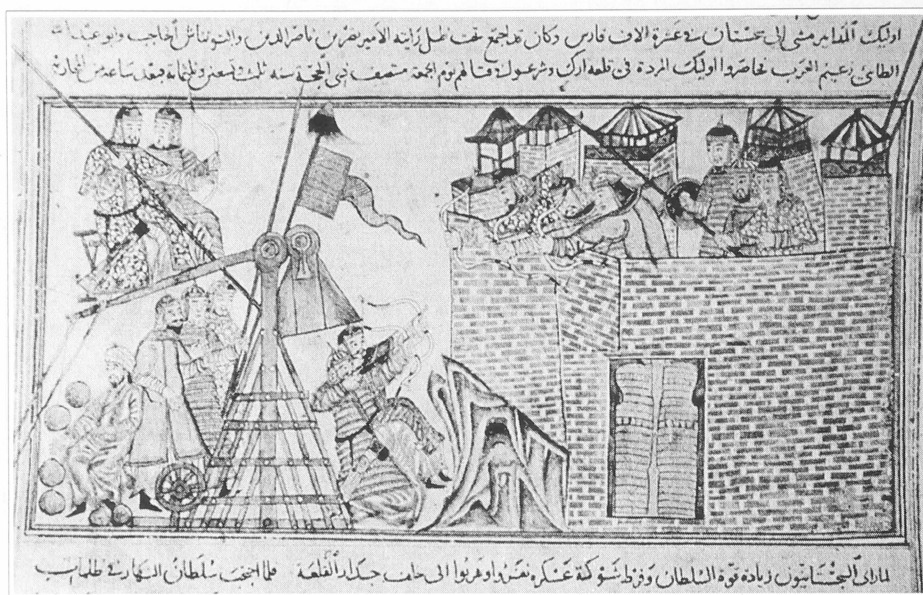 اوليك المدابير مشى إلى سجستان في عشرة الاف فارس وكان قد اجتمع تحت ظل رايته الامير نصر بن ناصر الدين والتونتاش الحاجب وابو عبد الله
الطائي زعيم العرب فحاصروا اوليك المردة في قلعة ارك وشرعوا في قتالهم يوم الجمعة منتصف ذي الحجة سنه ثلث وتسعين وثلثمائة فبعد ساعة من
لما رأى السجستانيون زيادة قوة السلطان وفرط شوكة عسكره وهربوا الى خلف جدار القلعة فلما سلطان النهار في ظلمات